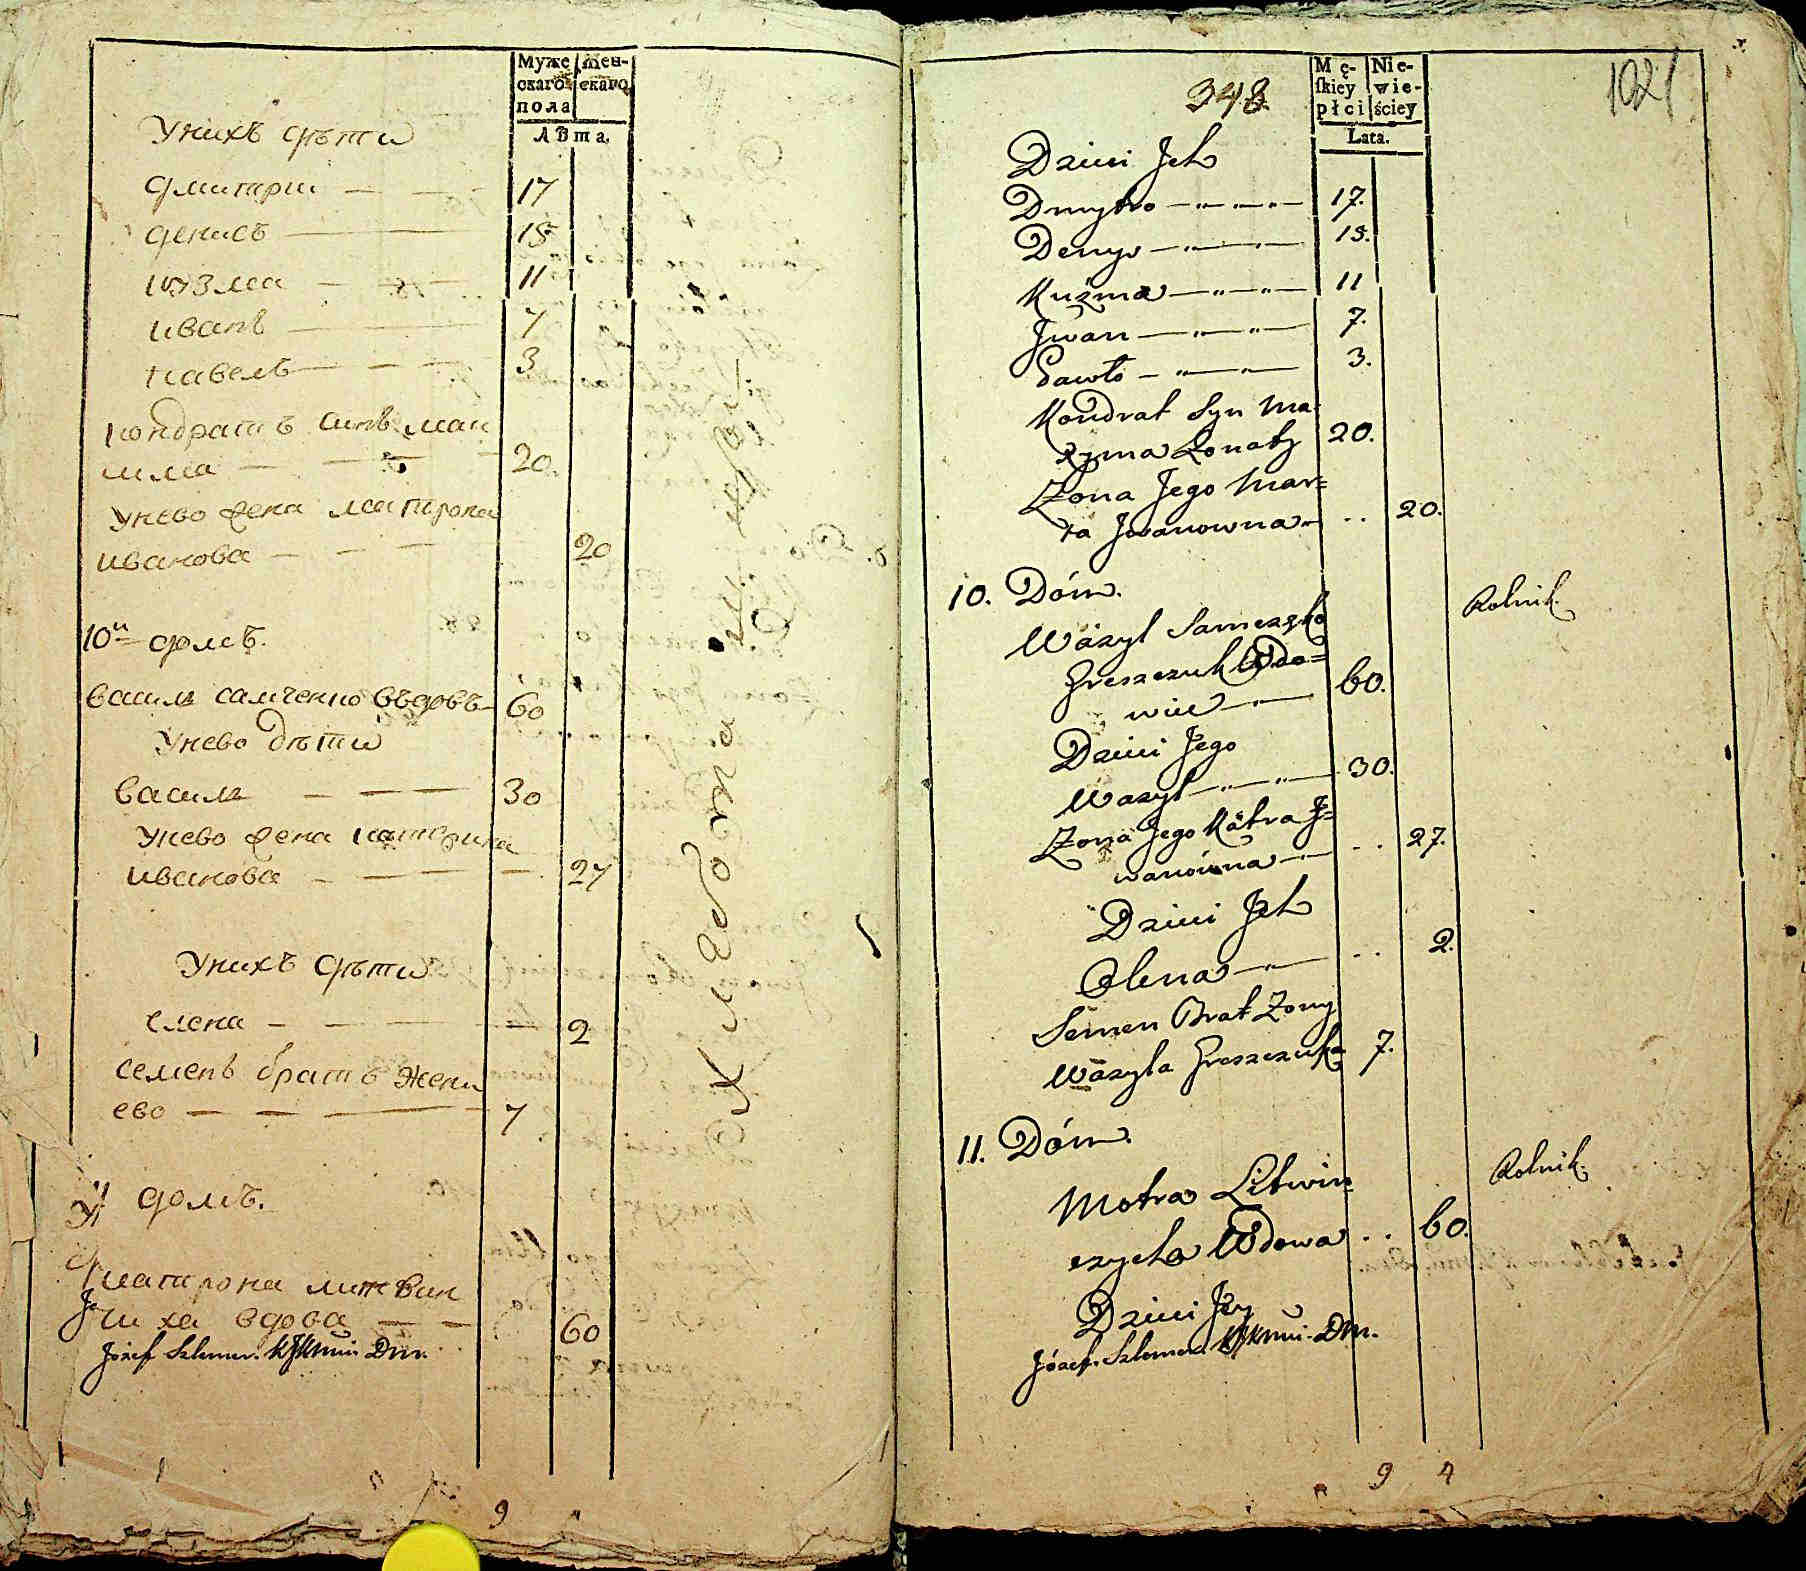 Муже
скаго
пола
жен-
скаго
Лѣта.
Унихъ дѣти
Дмитрии — — — 17
Денисъ — 15
Козма — — — 11
Иванъ — 7
Павелъ — — — 3
Кондратъ синъ Мак
има — — — 20.
Унево жена Матрона
Иванова — — — 20
10й домъ.
Василь Самченко въдовъ — 60
Унево дѣти
Василь — — — 30
Унево жена Катерина
Иванова — — — — 27
Унихъ дѣти
Елена — — — — 2
Семенъ братъ жени
ево — — — 7
домъ.
Матрона Литвин
чиха вдова — — 60
Józef
Dm.
9
Хлебопа
348.
1021
Mę-
ſkiey
płci
Nie-
wie-
ściey
Lata.
Dzieci Jch
Dmytro — „ — „ — 17.
Denys — „ — „ — 15.
Kuźma — „ — „ — 11
Jwan — „ — „ — 7.
Pawło — „ — „ — 3.
Kondrat Syn Ma-
xyma Żonaty 20.
Żona Jego Mar=
ta Jwanowna — .. 20.
10. Dóm.
Rolnik.
Wasyl Samczęko
Hreszczuk Wdo=
wiec — „ — 60.
Dzieci Jego
Wasyl — „ — „ — 30.
Żona Jego Katra J=
wanowna — „ — .. 27.
Dzieci Jch
Olena — „ — .. 2.
Semen Brat Żony
Wasyla Hreszczuka 7.
11. Dóm.
Rolnik.
Motra Litwin
czycha Wdowa .. 60.
Dzieci Jey
Józef
Dm.
9 4